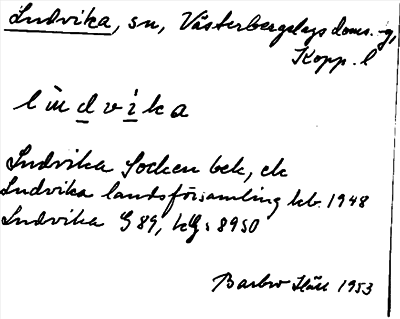 Ludvika, sn, Västerbergslags doms.-g,
Kopp. l
lùdvika
Ludvika Socken bek, ek
Ludvika landsförsamling kb. 1948
Ludvika G 89, kG: 8950
Barbro 1953